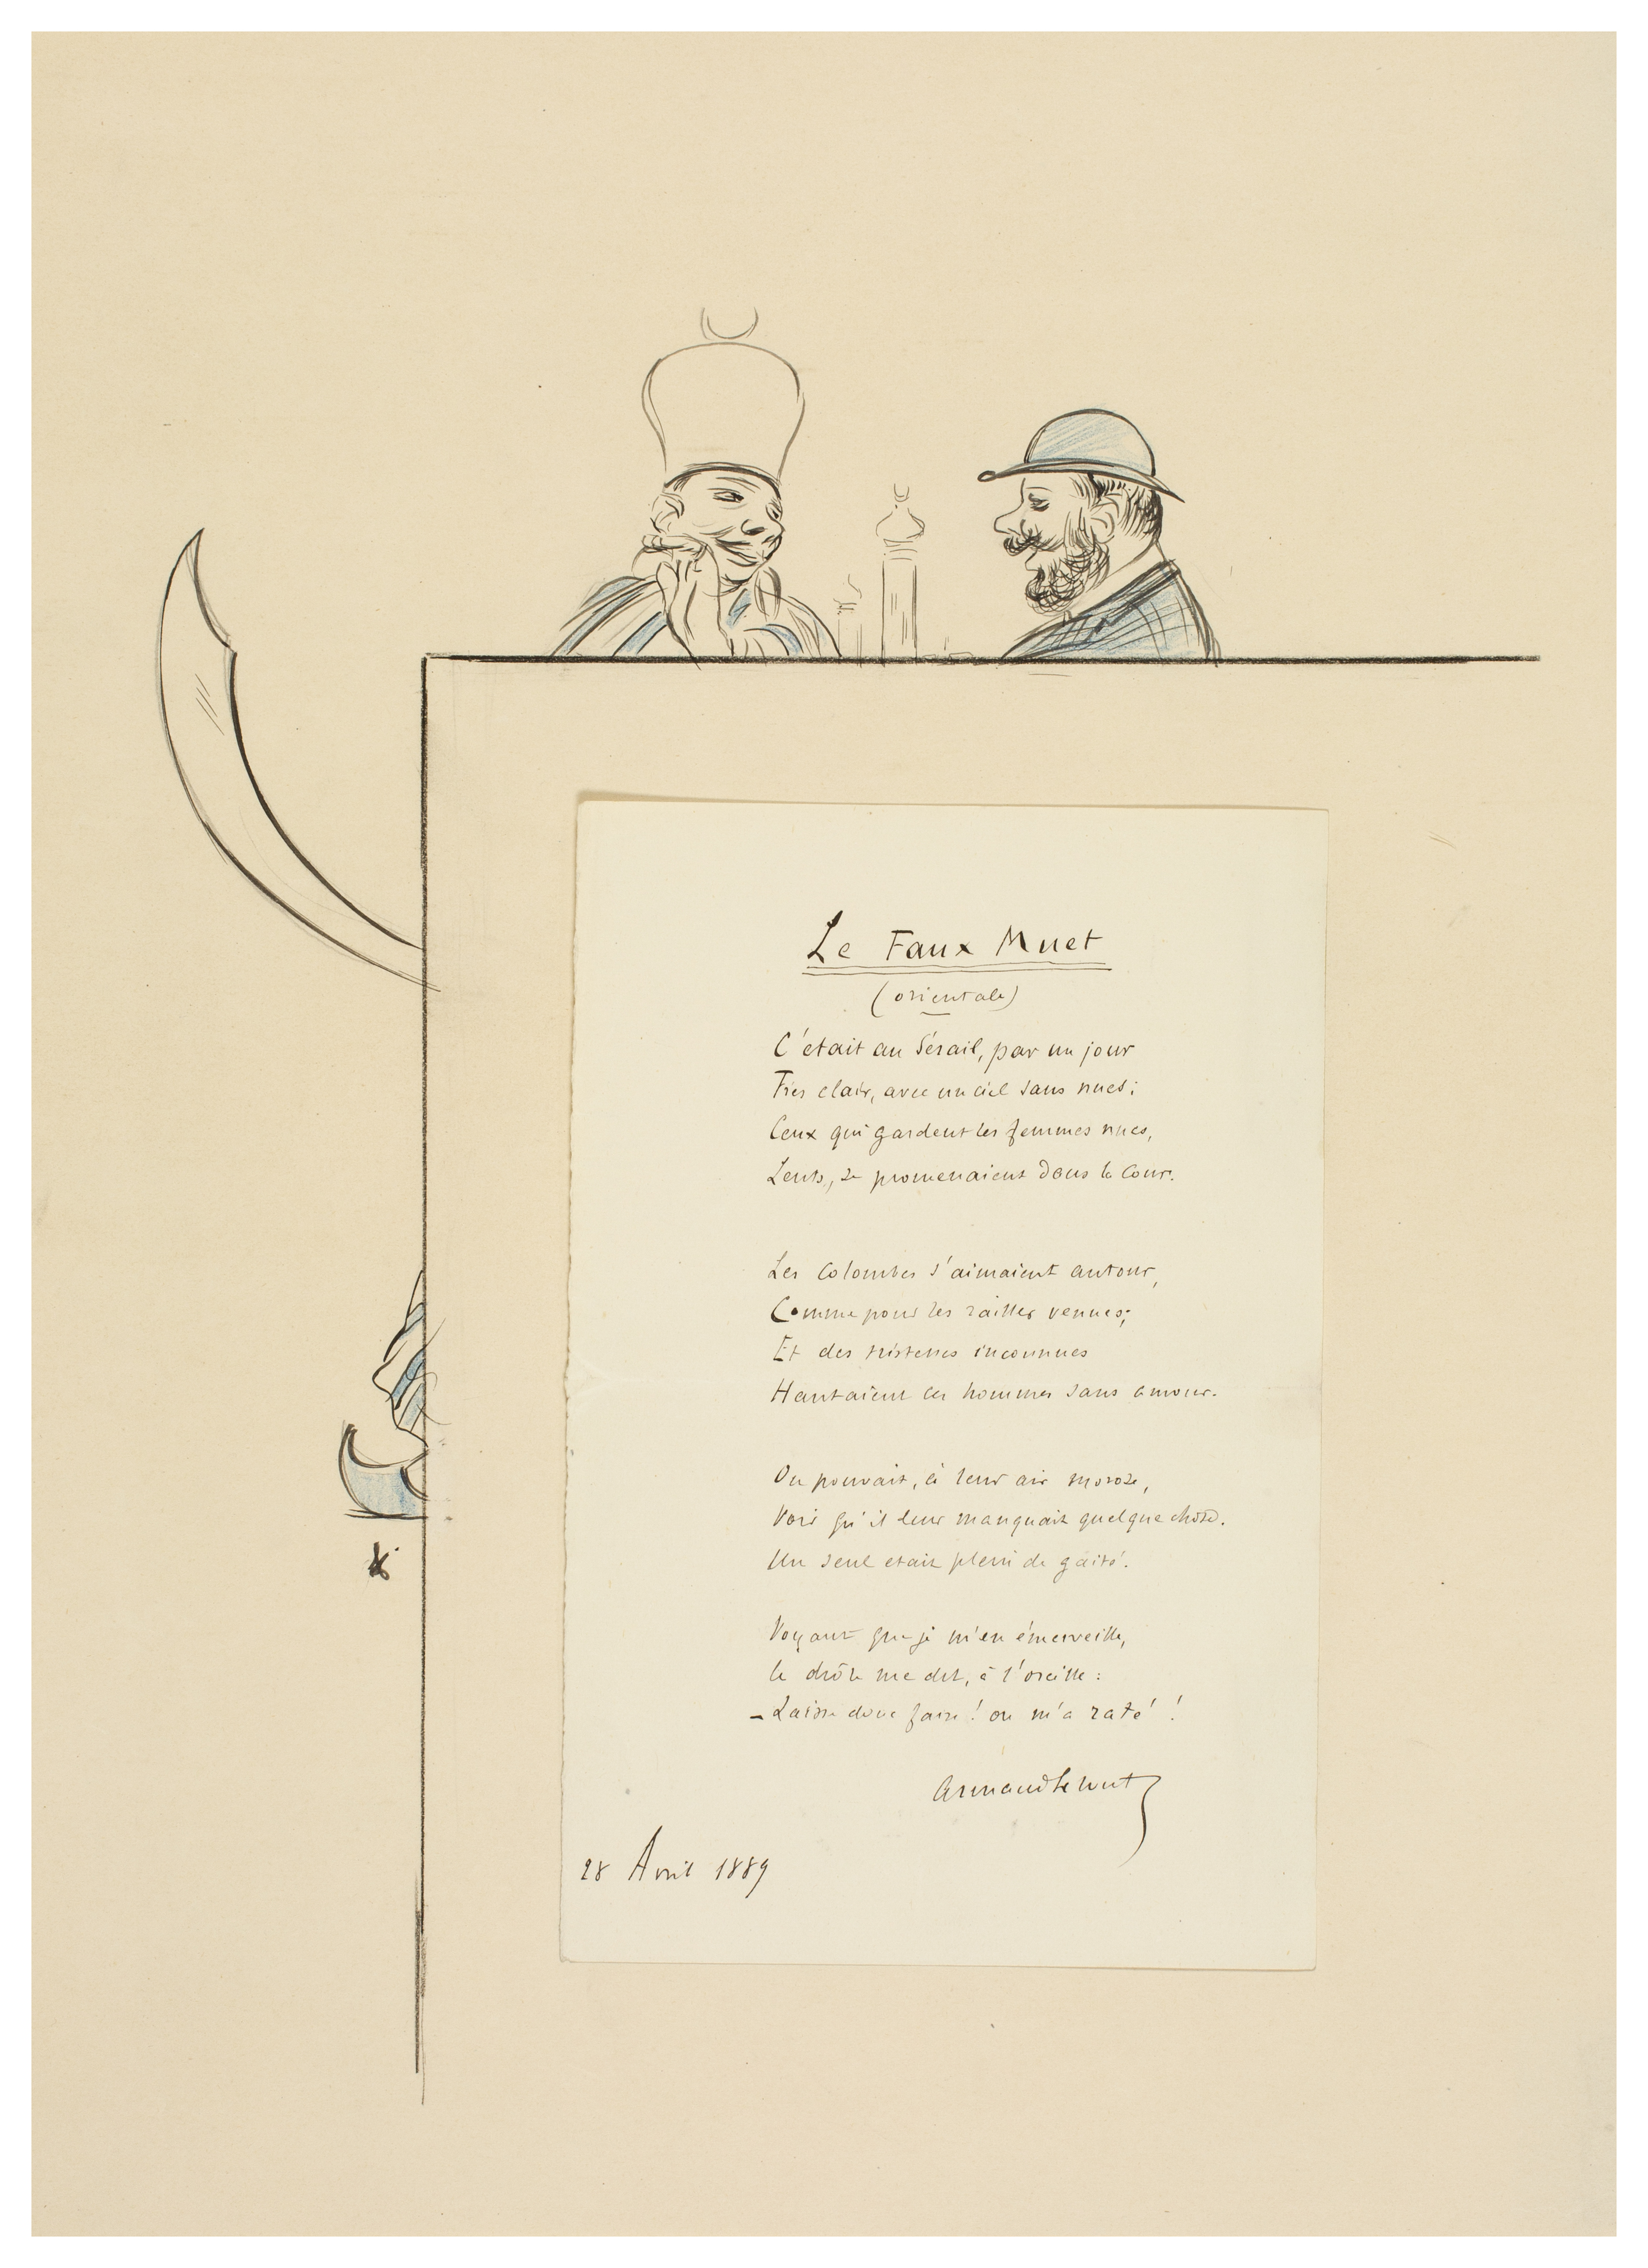 Le Faux Muet
(orientale)
C'était au Sérail, par un jour
Très clair, avec un ciel sans nues;
Ceux qui gardent les femmes nues,
Lents, se promenaient dans la Cour.
Les Colombes s'aimaient autour,
Comme pour les railler venues;
Et des tristesses inconnues
Hantaient ces hommes sans amour.
On pouvait, à leur air morose,
Voir qu'il leur manquait quelque chose.
Un seul etait plein de gaité.
Voyant que je m'en émerveille,
le drôle me dit, à l'oreille :
- Laisse donc faire ! on m'a raté !
28 Avril 1889